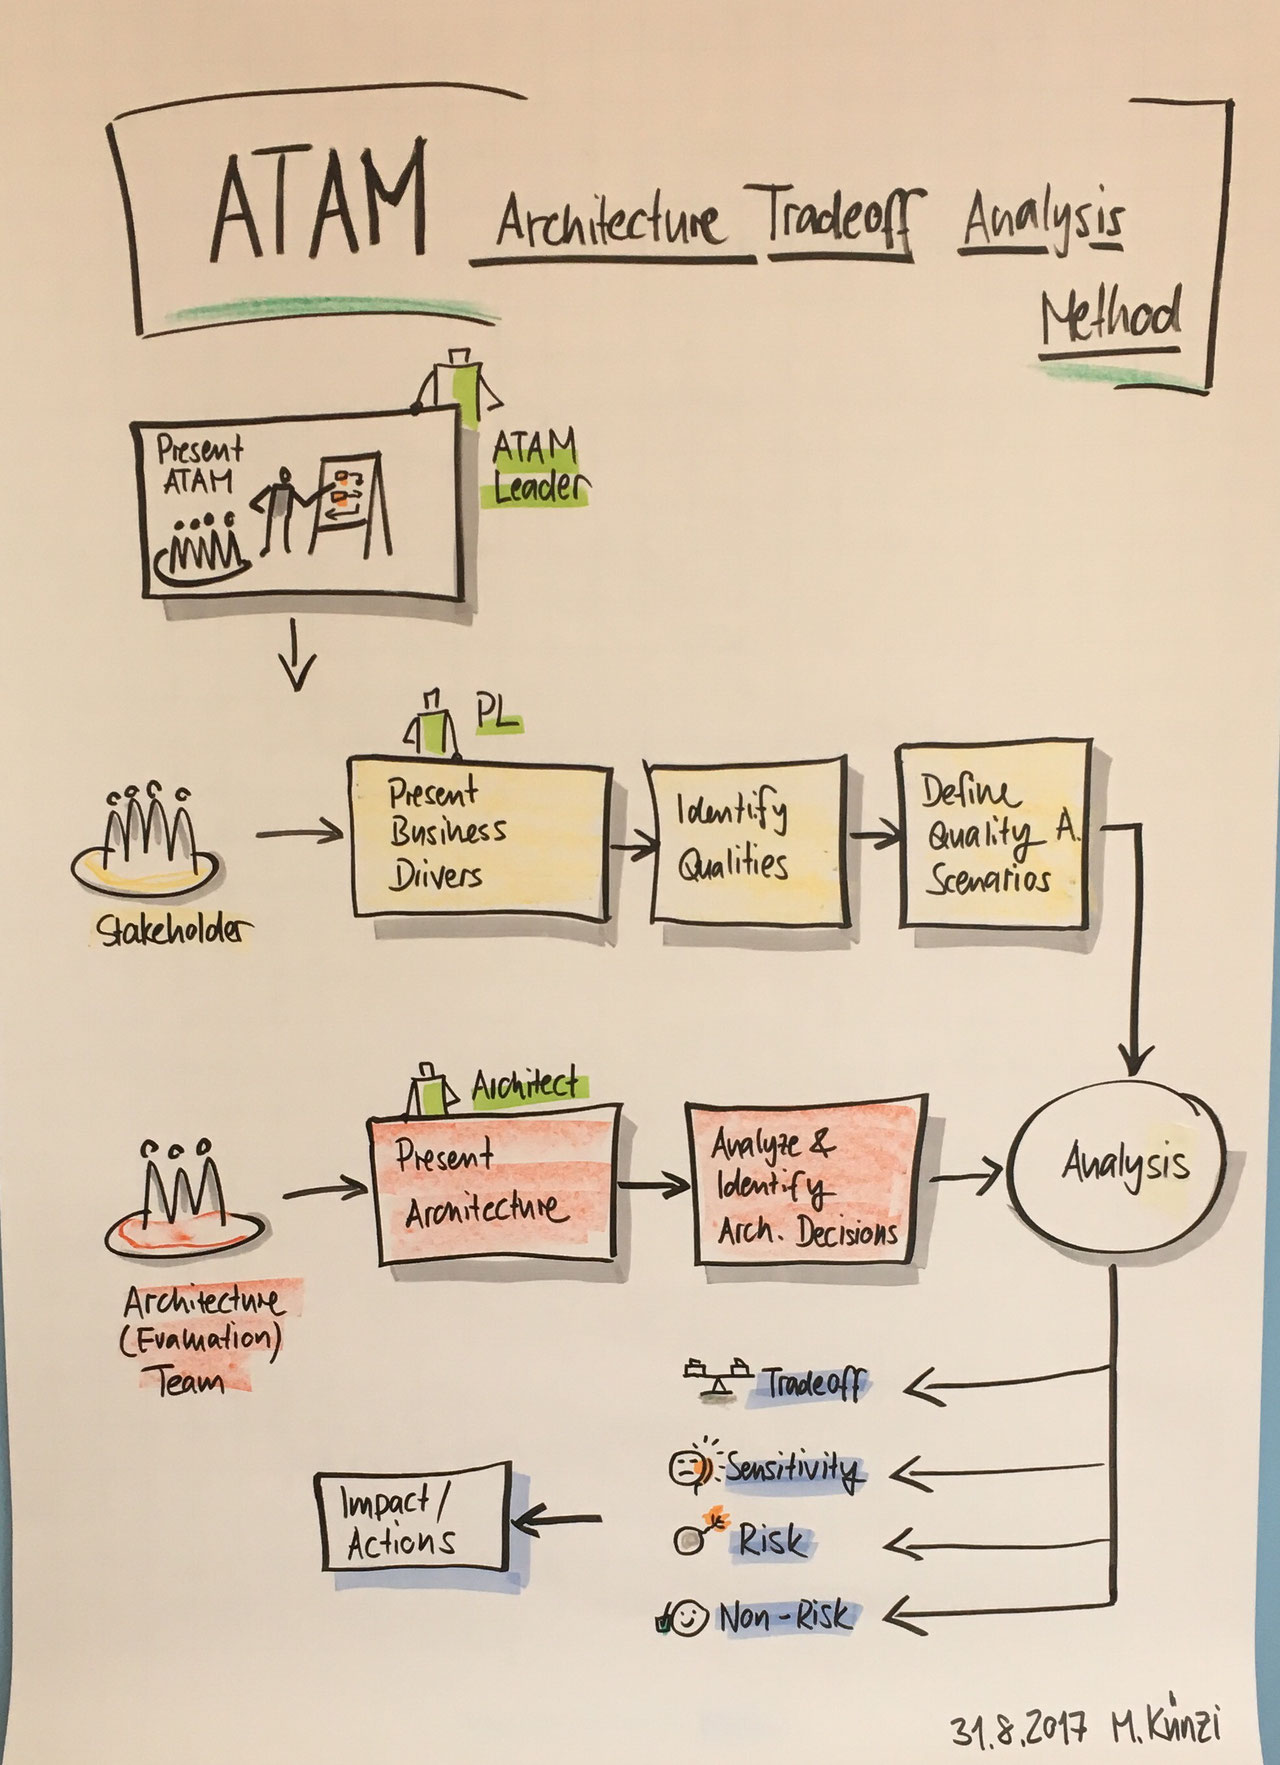 ATAM Architecture Tradeoff Analysis
Method
Present
ATAM
ATAM
Leader
PL
Present
Business
Drivers
Identify
Qualities
Define
Quality A.
Scenarios
Stakeholder
Architect
Present
Architecture
Analyze &
Identify
Arch. Decisions
Analysis
Architecture
(Evaluation)
Team
Tradeoff
Sensitivity
Risk
Non-Risk
Impact/
Actions
31.8.2017 M. Künzi